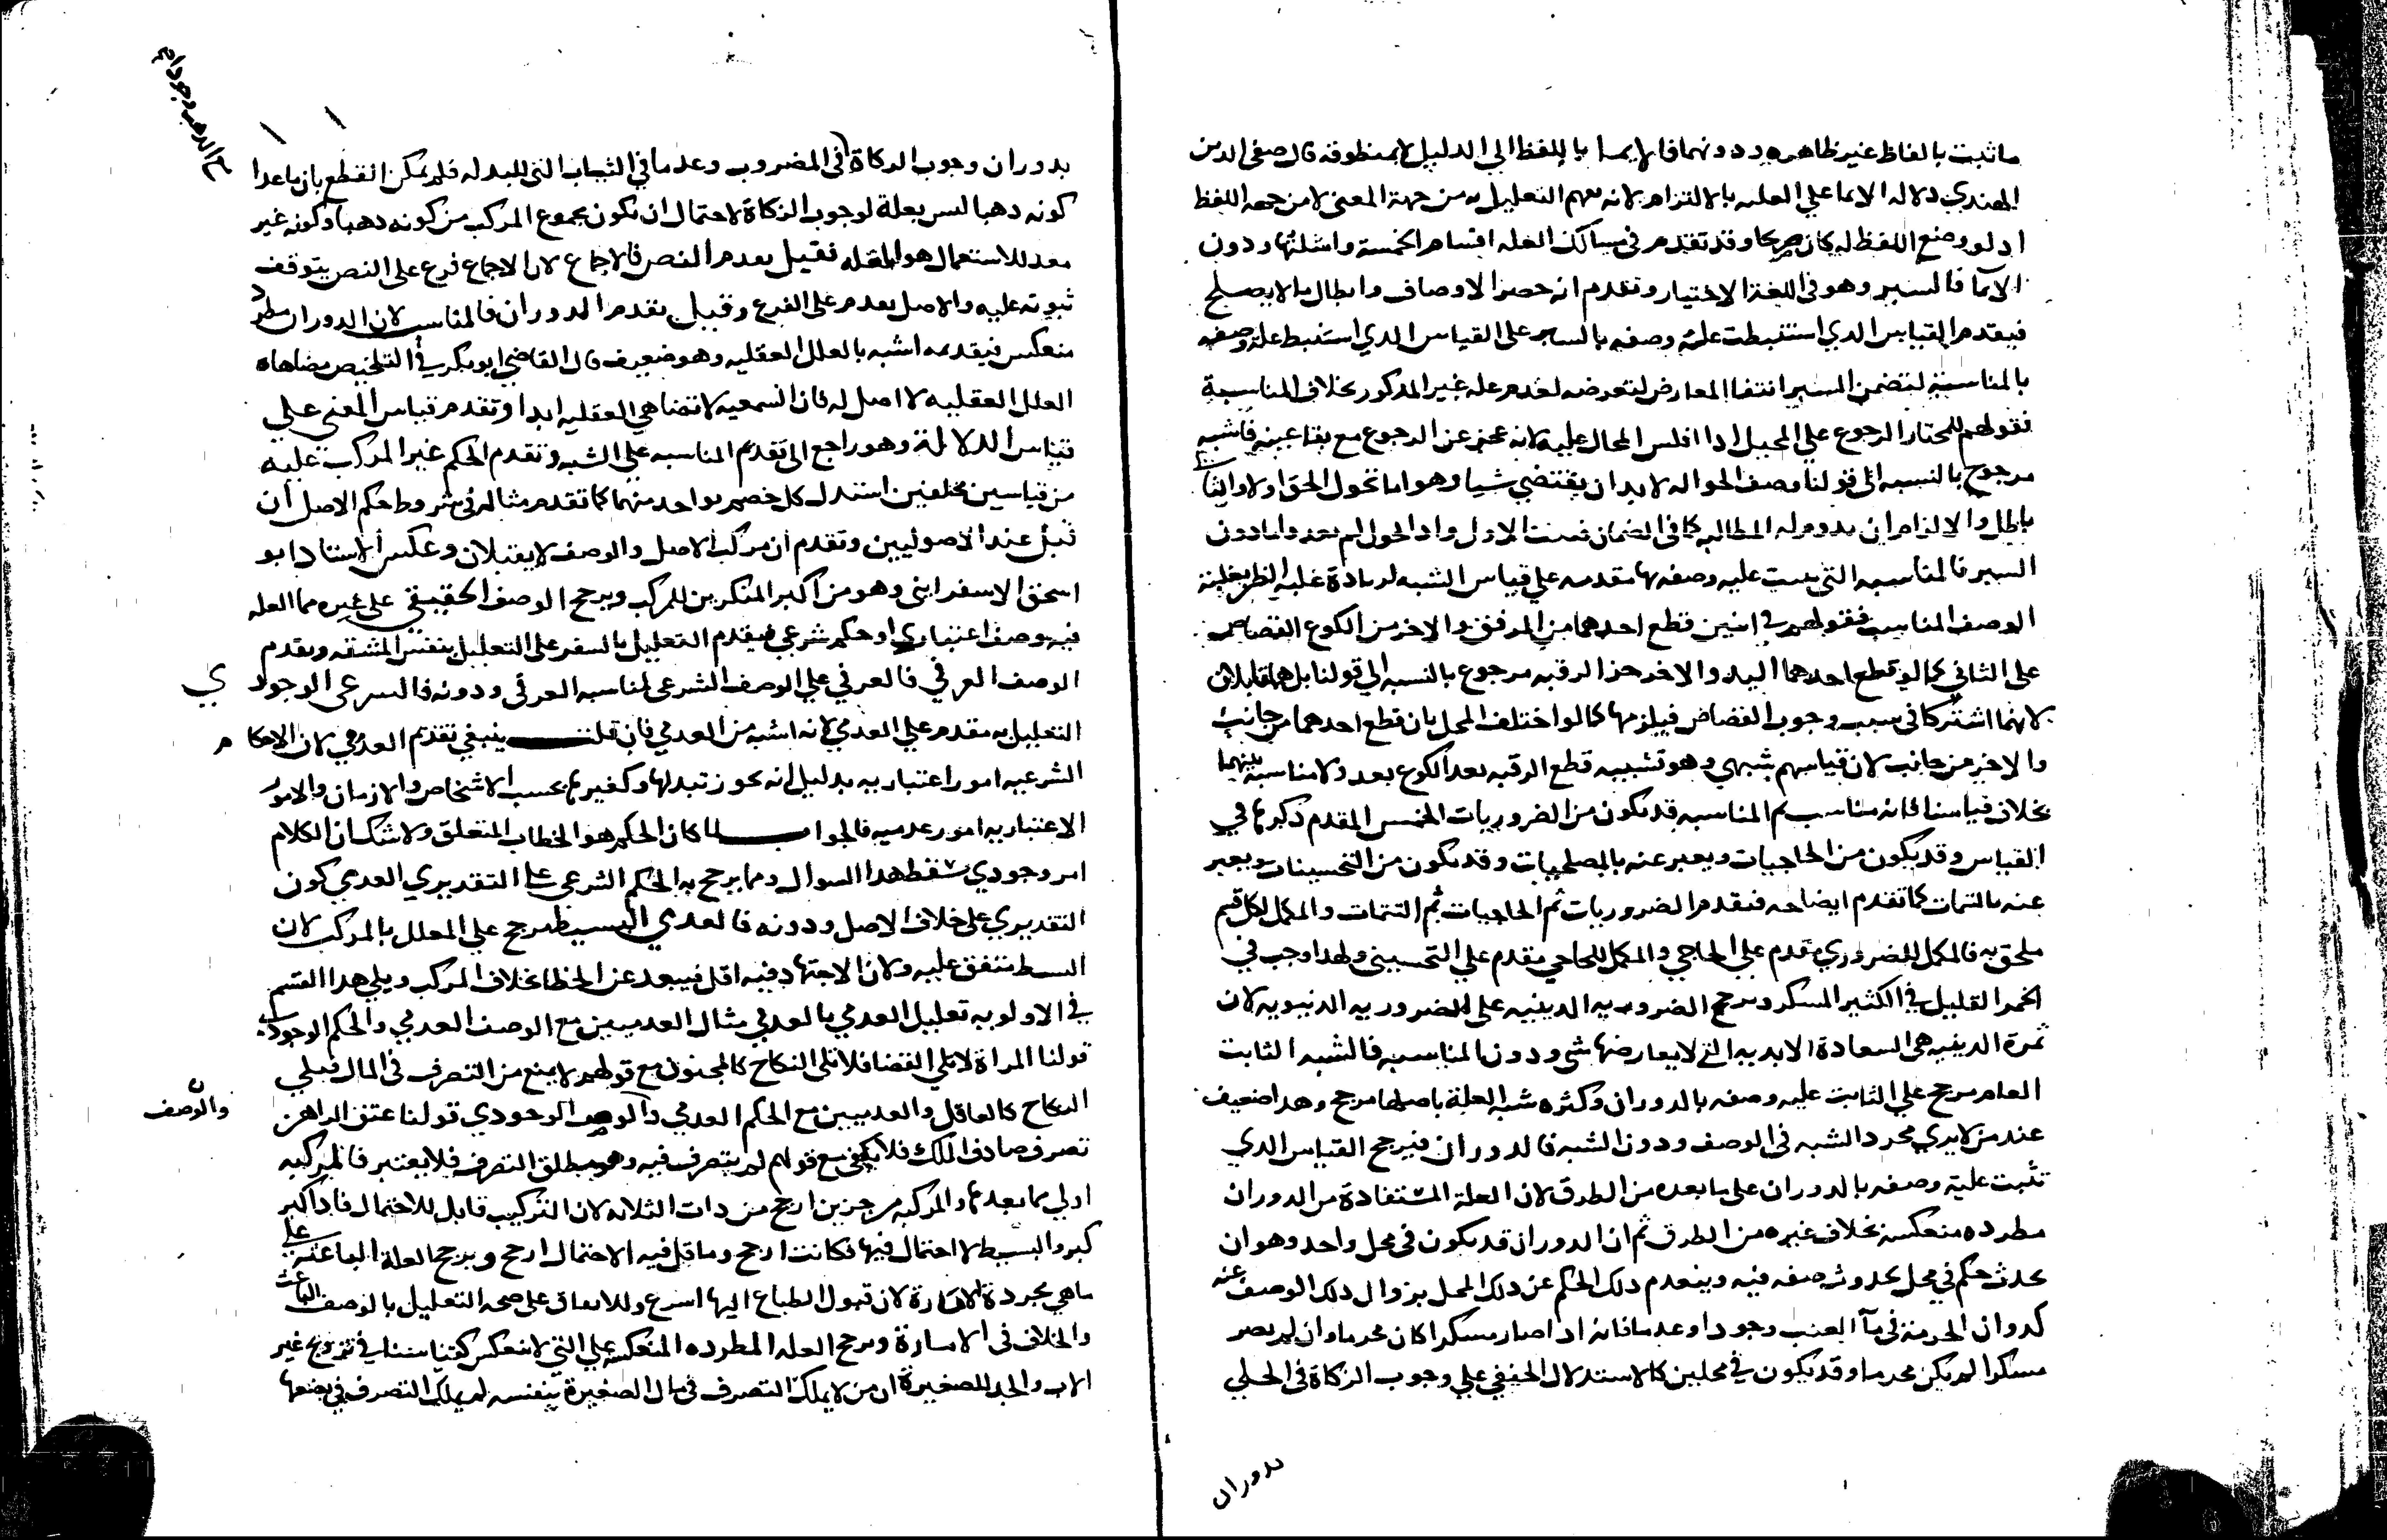 ما ثبت بالفاظ غير ظاهره ودونهما فالايما باللفظ الي الدليل لا بمنطوقه قال صفي الدين
الهندي دلاله الايما علي العليه بالالتزام لانه يفهم التعليل به من جهة المعني لا من جهه اللفظ
اذ لو وضع اللفظ له كان صريحا وقد تقدم في مسالك العله اقسامه الخمسة وامثلتها ودون
الايما فالسبر وهو في اللغة الاختيار وتقدم انه حصر الاوصاف وابطال ما لا يصلح
فيقدم القياس الدي استنبطت علية وصفه بالسبر علي القياس الدي استنبط علية وصفه
بالمناسبة لتضمن السبر انتفا المعارض لتعرضه لعدم عله غير المدكور بخلاف المناسبة
فقولهم للمحتار الرجوع علي المحيل ادا افلس المحال عليه لانه عجز عن الرجوع مع بقا عينه فاشبه
مرجوح بالنسبه الي قولنا وصف الحواله لا بد ان يقتضي شيا وهو اما تحول الحق اولا والثاني
باطل والا لزم ان يدوم له المطالبه كما في الضمان فتعين الاول وادا تحول لم يعد واما دون
السبر فالمناسبه التي يبت عليه وصفه بها مقدمه علي قياس الشبه لزيادة غلبه الظن بغلبة
الوصف المناسب فقولهم في اثنين قطع احدهما من المرفق والاخر من الكوع القصاص
علي الثاني كما لو قطع احدهما اليد والاخر حز الرقبه مرجوع بالنسبه الي قولنا بل هما قاتلان
لانهما اشتركا في سبب وجوب القصاص فيلزمها كما لو اختلف المحل بان قطع احدهما من جانب
والاخر من جانب لان قياسهم شبهي وهو تشبيه قطع الرقبه بعد الكوع بعد ولا مناسبة بينهما
بخلاف قياسنا فانه مناسب ثم المناسبه قد تكون من الضروريات الخمس المقدم ذكرها في
القياس وقد يكون من الحاجيات ويعبر عنه بالمصلحيات وقد تكون من التحسينات ويعبر
عنه بالتتمات كما تقدم ايضاحه فتقدم الضروريات ثم الحاجيات ثم التتمات والمكمل لكل قسم
ملحق به فالمكمل للضروري مقدم علي الحاجي والمكمل للحاجي مقدم علي التحسيني ولهدا وجب في
الخمر القليل في الكثير المسكر ويرجح الضروريه الدينيه علي الضروريه الدنيويه لان
ثمرة الدينيه هي السعادة الابديه التي لا يعارضها شي ودون المناسبه فالشبه الثابت
العام مرجح علي الثابت عليه وصفه بالدوران وكثره شبه العلة باصلها مرجح وهدا ضعيف
عند من لا يري مجرد الشبه في الوصف ودون الشبه فالدوران فيرجح القياس الدي
تثبت علية وصفه بالدوران علي ما بعده من الطرق لان العلة المستفادة من الدوران
مطرده منعكسة بخلاف غيره من الطرق ثم ان الدوران قد يكون في محل واحد وهو ان
يحدث حكم في محل بحدوث صفه فيه وينعدم دلك الحكم عن دلك المحل بزوال دلك الوصف عنه
كدوران الحرمة في مآ العنب وجودا وعدما فانه اذا صار مسكرا كان محرما وان لم يصر
مسكرا لم يكن محرما وقد يكون في محلين كالاستدلال الحنفي علي وجوب الزكاة في الحلي
بدوران
بدوران وجوب الزكاة في المضروب وعدمها في الثياب التي للبدله فلم يمكن القطع بان ما عدا
كونه دهبا ليس بعلة لوجوب الزكاة لاحتمال ان تكون مجموع المركب من كونه دهبا وكونه غير
معد للاستعمال هو العله فقيل يقدم النص فالاجماع لان الاجماع فرع علي النص يتوقف
ثبوته عليه والاصل يقدم علي الفرع وقيل يقدم الدوران فالمناسب لان الدوران مطرد
منعكس فيقدم اشبه بالعلل العقليه وهو ضعيف قال القاضي ابو بكر في التلخيص مضاهاه
العلل العقليه لا اصل له فان السمعيه لا تضاهي العقليه ابدا وتقدم قياس المعني علي
قياس الدلالة وهو راجع الي تقديم المناسبه علي الشبه وتقدم الحكم غير المركب عليه
من قياسين مختلفين استدل كل خصم بواحد منهما كما تقدم مثاله في شروط حكم الاصل ان
قبل عند الاصوليين وتقدم ان مركب الاصل والوصف لا يقبلان وعكس الاستاد ابو
اسحق الاسفرايني وهو من اكبر المنكرين للمركب ويرجح الوصف الحقيقي علي غيره مما العله
فيه وصف اعتباري او حكم شرعي فيقدم التعليل بالسفر علي التعليل بنفس المشقه ويقدم
الوصف العرفي فالعرفي علي الوصف الشرعي لمناسبه العرفي ودونه فالشرعي الوجودي
التعليل به مقدم علي العدمي لانه اشبه من العدمي فان قلت ينبغي تقديم العدمي لان الاحكام
الشرعيه امور اعتباريه بدليل انه يجوز تبدلها وكغيرها بحسب الاشخاص والازمان والامور
الاعتباريه امور عدميه فالجواب لما كان الحكم هو الخطاب المتعلق ولا شك ان الكلام
امر وجودي سقط هدا السوال ومما يرجح به الحكم الشرعي علي التقديري العدمي كون
التقديري علي خلاف الاصل ودونه فالعدمي البسيط مرجح علي المعلل بالمركب لان
البسيط متفق عليه ولان الاجتهاد فيه اقل فيبعد عن الخطا بخلاف المركب ويلي هدا القسم
في الاولويه تعليل العدمي بالعدمي مثال العدميين مع الوصف العدمي والحكم الوجودي
قولنا المراة لا تلي القضا فلا تلي النكاح كالمجنون مع قولهم لا يمنع من التصرف في المال فيلي
النكاح كالعاقل والعدميين مع الحكم العدمي والوصف الوجودي قولنا عتق الراهن
تصرف صادف الملك فلا يلغي مع قولهم لم يتصرف فيه وهو مطلق التصرف فلا يعتبر فالمركبه
اولي مما بعدها والمركبه من جزين ارجح من دات الثلاثه لان التركيب قابل للاحتمال فاذا كثر
كبر والبسيط لا احتمال فيها فكانت ارجح وما قل فيه الاحتمال ارجح ويرجح العلة الباعثه علي
ما هي مجردة الامارة لان قبول الطباع اليها اسرع وللاتفاق علي صحه التعليل بالوصف الباعث
والخلاف في الامارة ويرجح العله المطرده المنعكسه علي التي لا تنعكس كقياسنا في تزويج غير
الاب والجد للصغيرة ان من لا يملك التصرف في مال الصغيرة بنفسه لم يملك التصرف في بضعها
والوصف